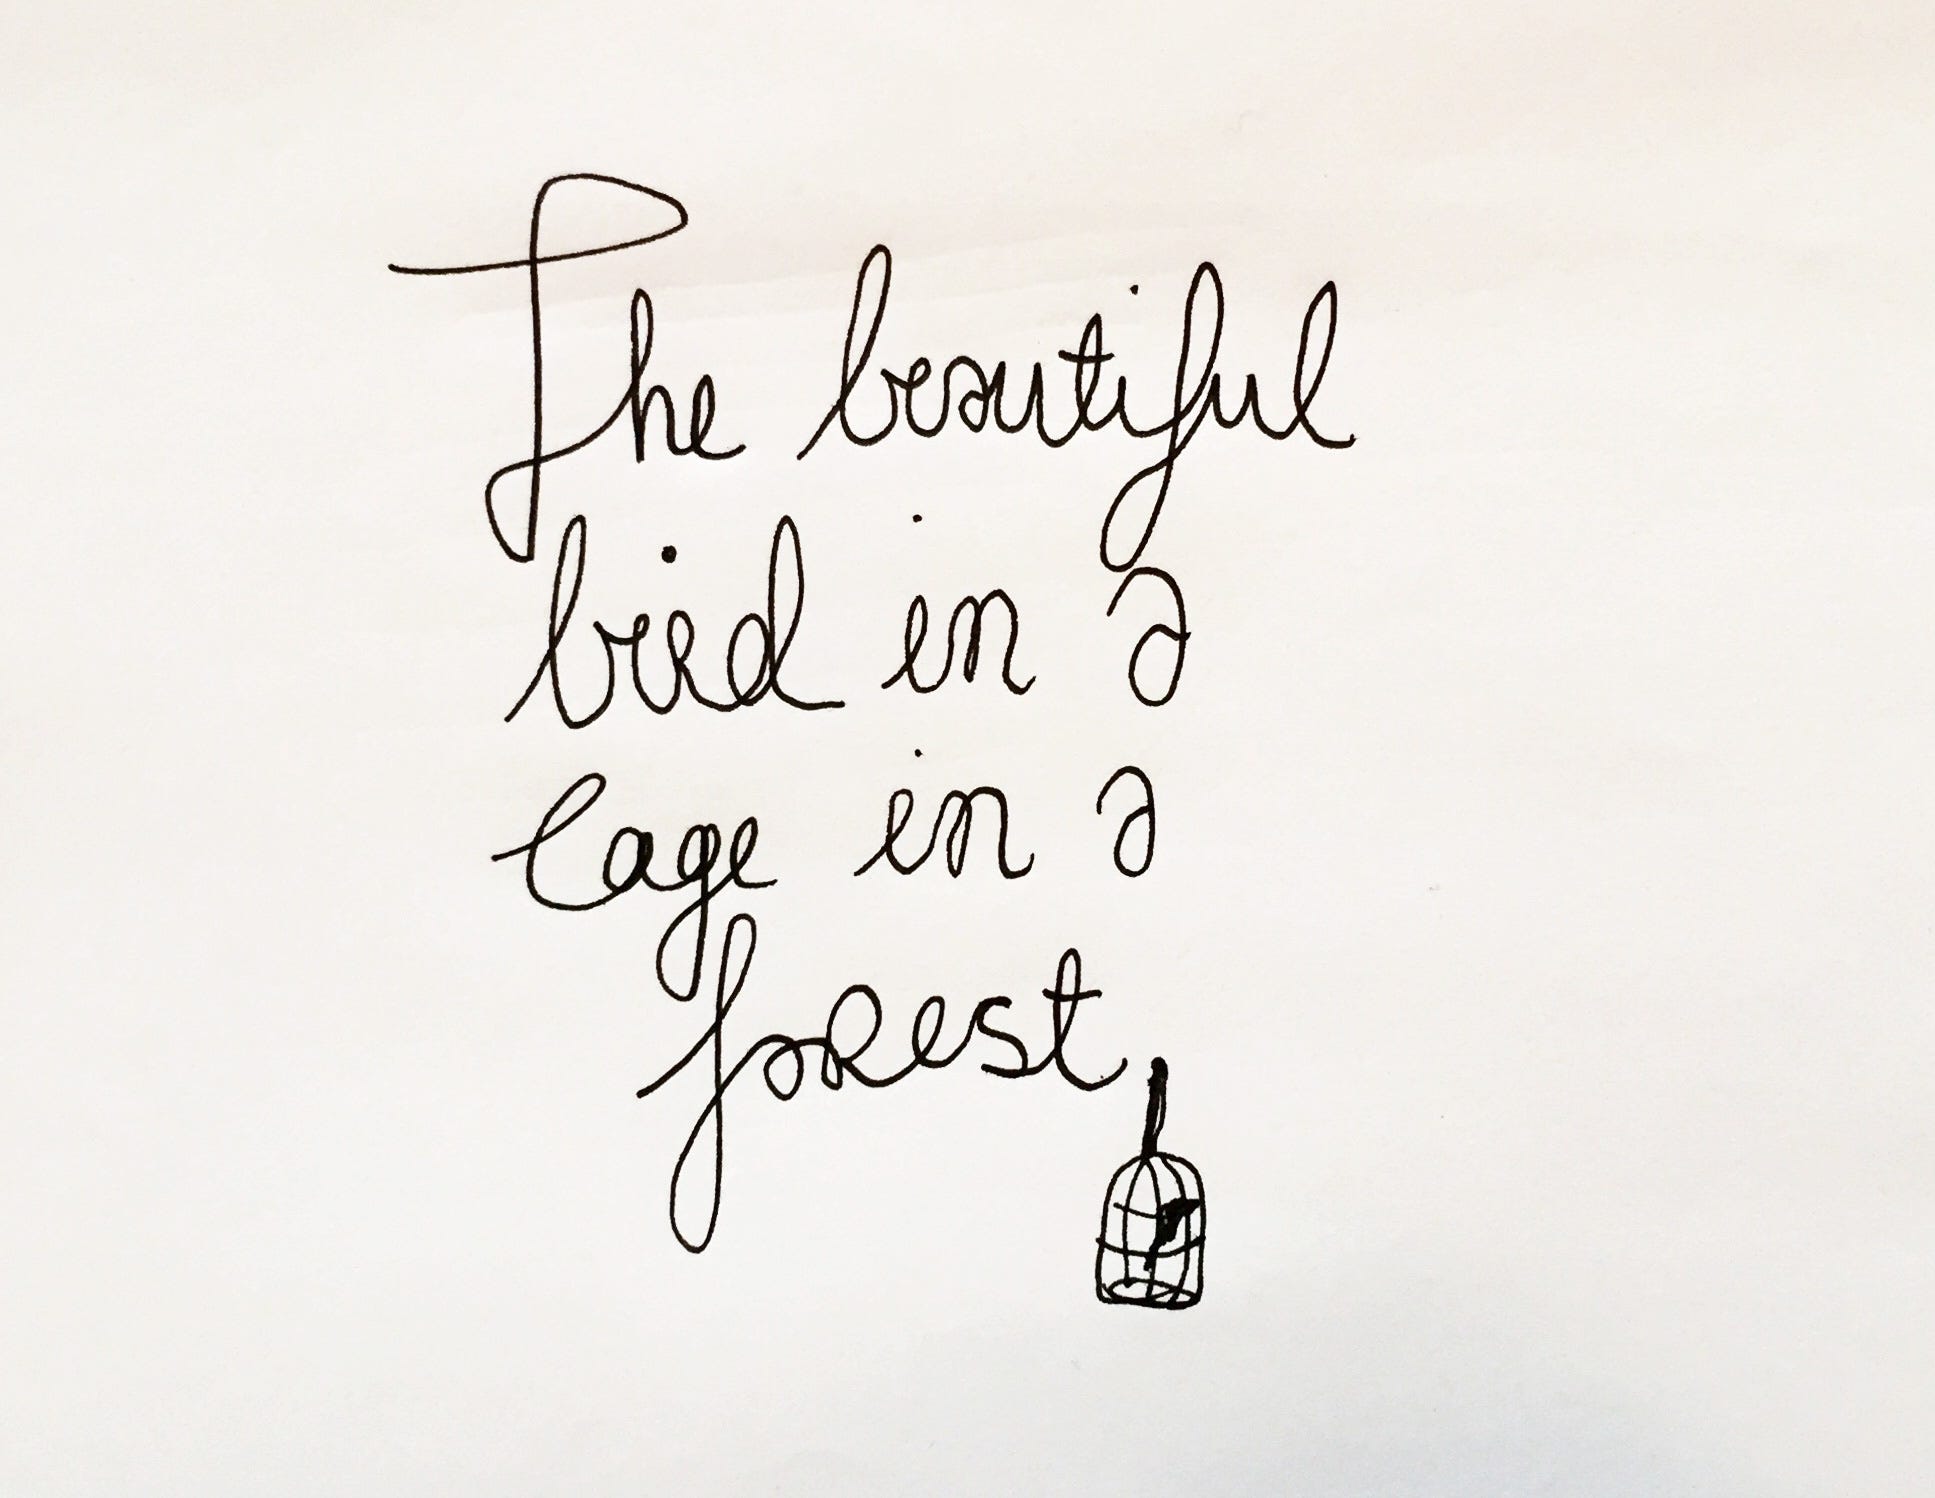 The beautiful
bird in a
cage in a
forest